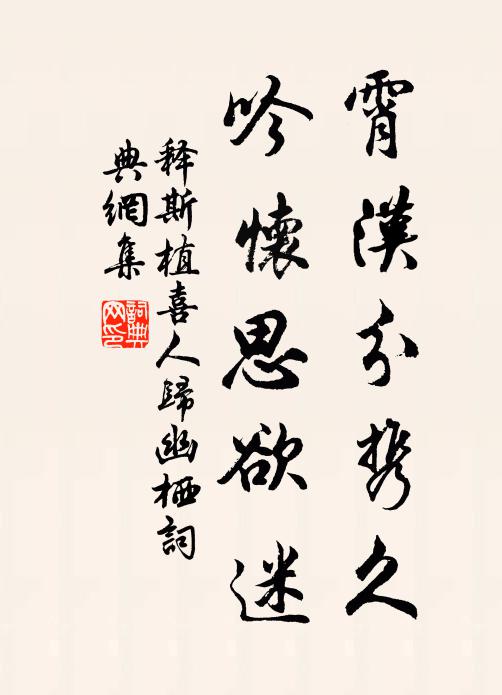 霄漢分携久
吟懷思欲迷
釋斯植喜人歸幽栖詞
典網集
詞典
网印